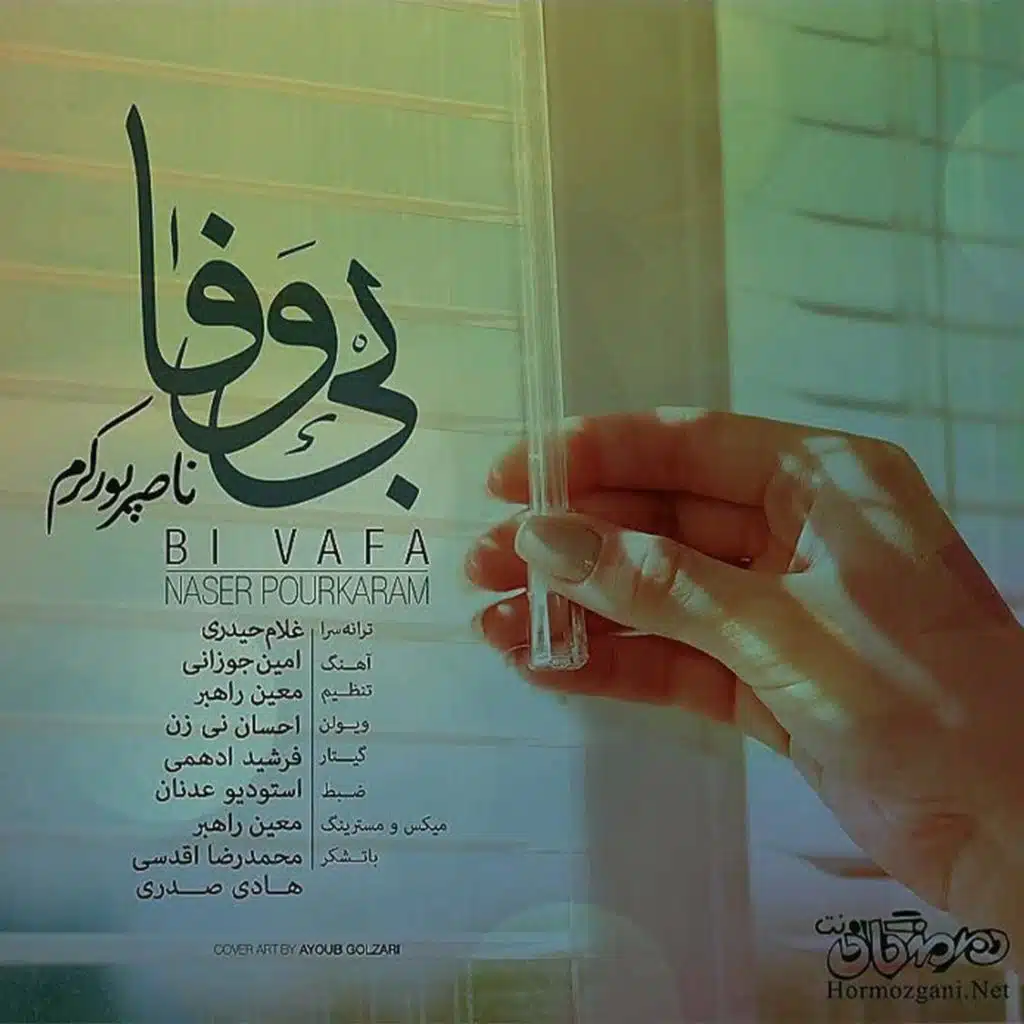 بی وفا
ناصر پورکرم
BI VAFA
NASER POURKARAM
ترانه‌سرا غلام حیدری
آهنگ امین جوزانی
تنظیم معین راهبر
ویولن احسان نی زن
گیتار فرشید ادهمی
ضبط استودیو عدنان
میکس و مسترینگ معین راهبر
باتشکر محمدرضا اقدسی
هادی صدری
COVER ART BY AYOUB GOLZARI
هرمزگانی نت
Hormozgani.Net